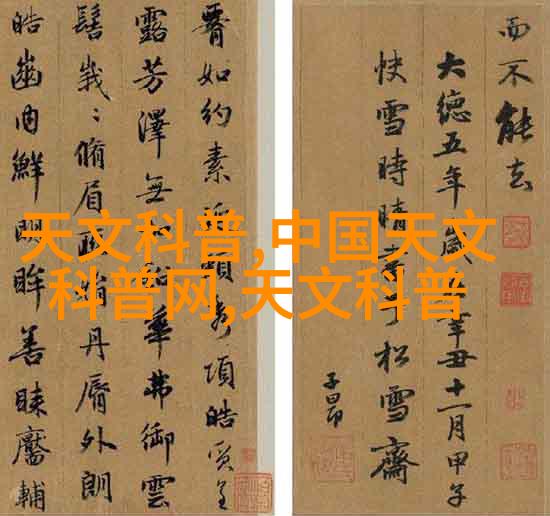 天文科普,中国天文
科普网,天文科普
而不能去
大德五年歲辛丑十一月甲子
快雪時晴書于松雪齋
子昂
腰如約素延頸秀項皓質呈
露芳澤無華弗御雲
髻峩〻脩眉娟丹脣外朗
皓齒內鮮明眸善睞靨輔